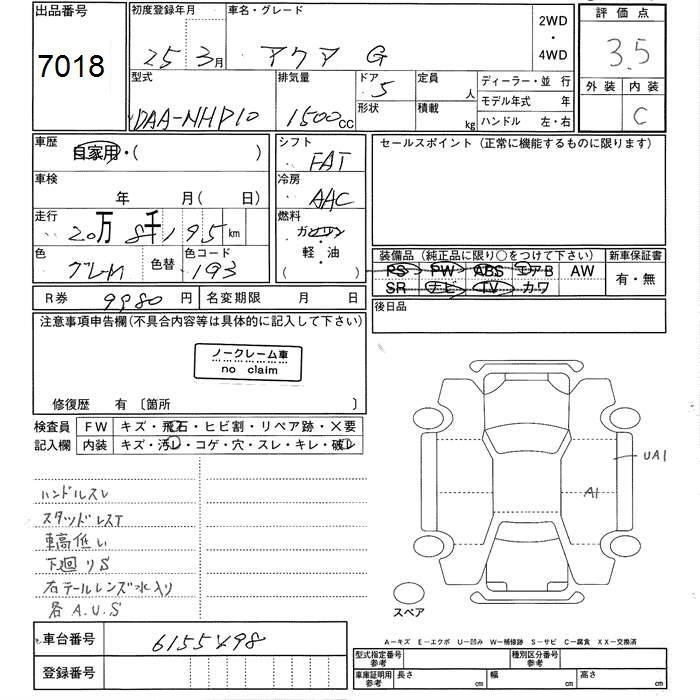 出品番号
7018
初度登録年月
25 3月
車名・グレード
アクア G
2WD
・
4WD
評価点
3.5
外装 内装
C
型式
DAA-NHP10
排気量
1500cc
ドア 5
形状
定員 人
積載 kg
ディーラー・並行
モデル年式 年
ハンドル 左・右
車歴
自家用・( )
シフト
FAT
車検
年 月( 日)
冷房
AAC
走行
20万 8千195 km
燃料
ガソリン
・
軽・油
( )
色
グレM
色替
色コード
193
R券 9980 円
名変期限 月 日
セールスポイント (正常に機能するものに限ります)
装備品 (純正品に限り○をつけて下さい)
PS PW ABS エアB AW
SR ナビ TV カワ
新車保証書
有・無
後日品
注意事項申告欄(不具合内容等は具体的に記入して下さい)
ノークレーム車
no claim
修復歴 有 〔箇所 〕
検査員
記入欄
FW キズ・飛石・ヒビ割・リペア跡・X要
内装 キズ・汚レ・コゲ・穴・スレ・キレ・破レ
ハンドルスレ
スタッドレスT
車高低い
下廻りS
右テールレンズ水入り
各A.U.S
UA1
A1
スペア
A―キズ E―エクボ U―凹み W―補修跡 S―サビ C―腐食 XX―交換済
車台番号
登録番号
型式指定番号
参考
種別区分番号
参考
車庫証明用
参考
長さ cm
幅 cm
高さ cm